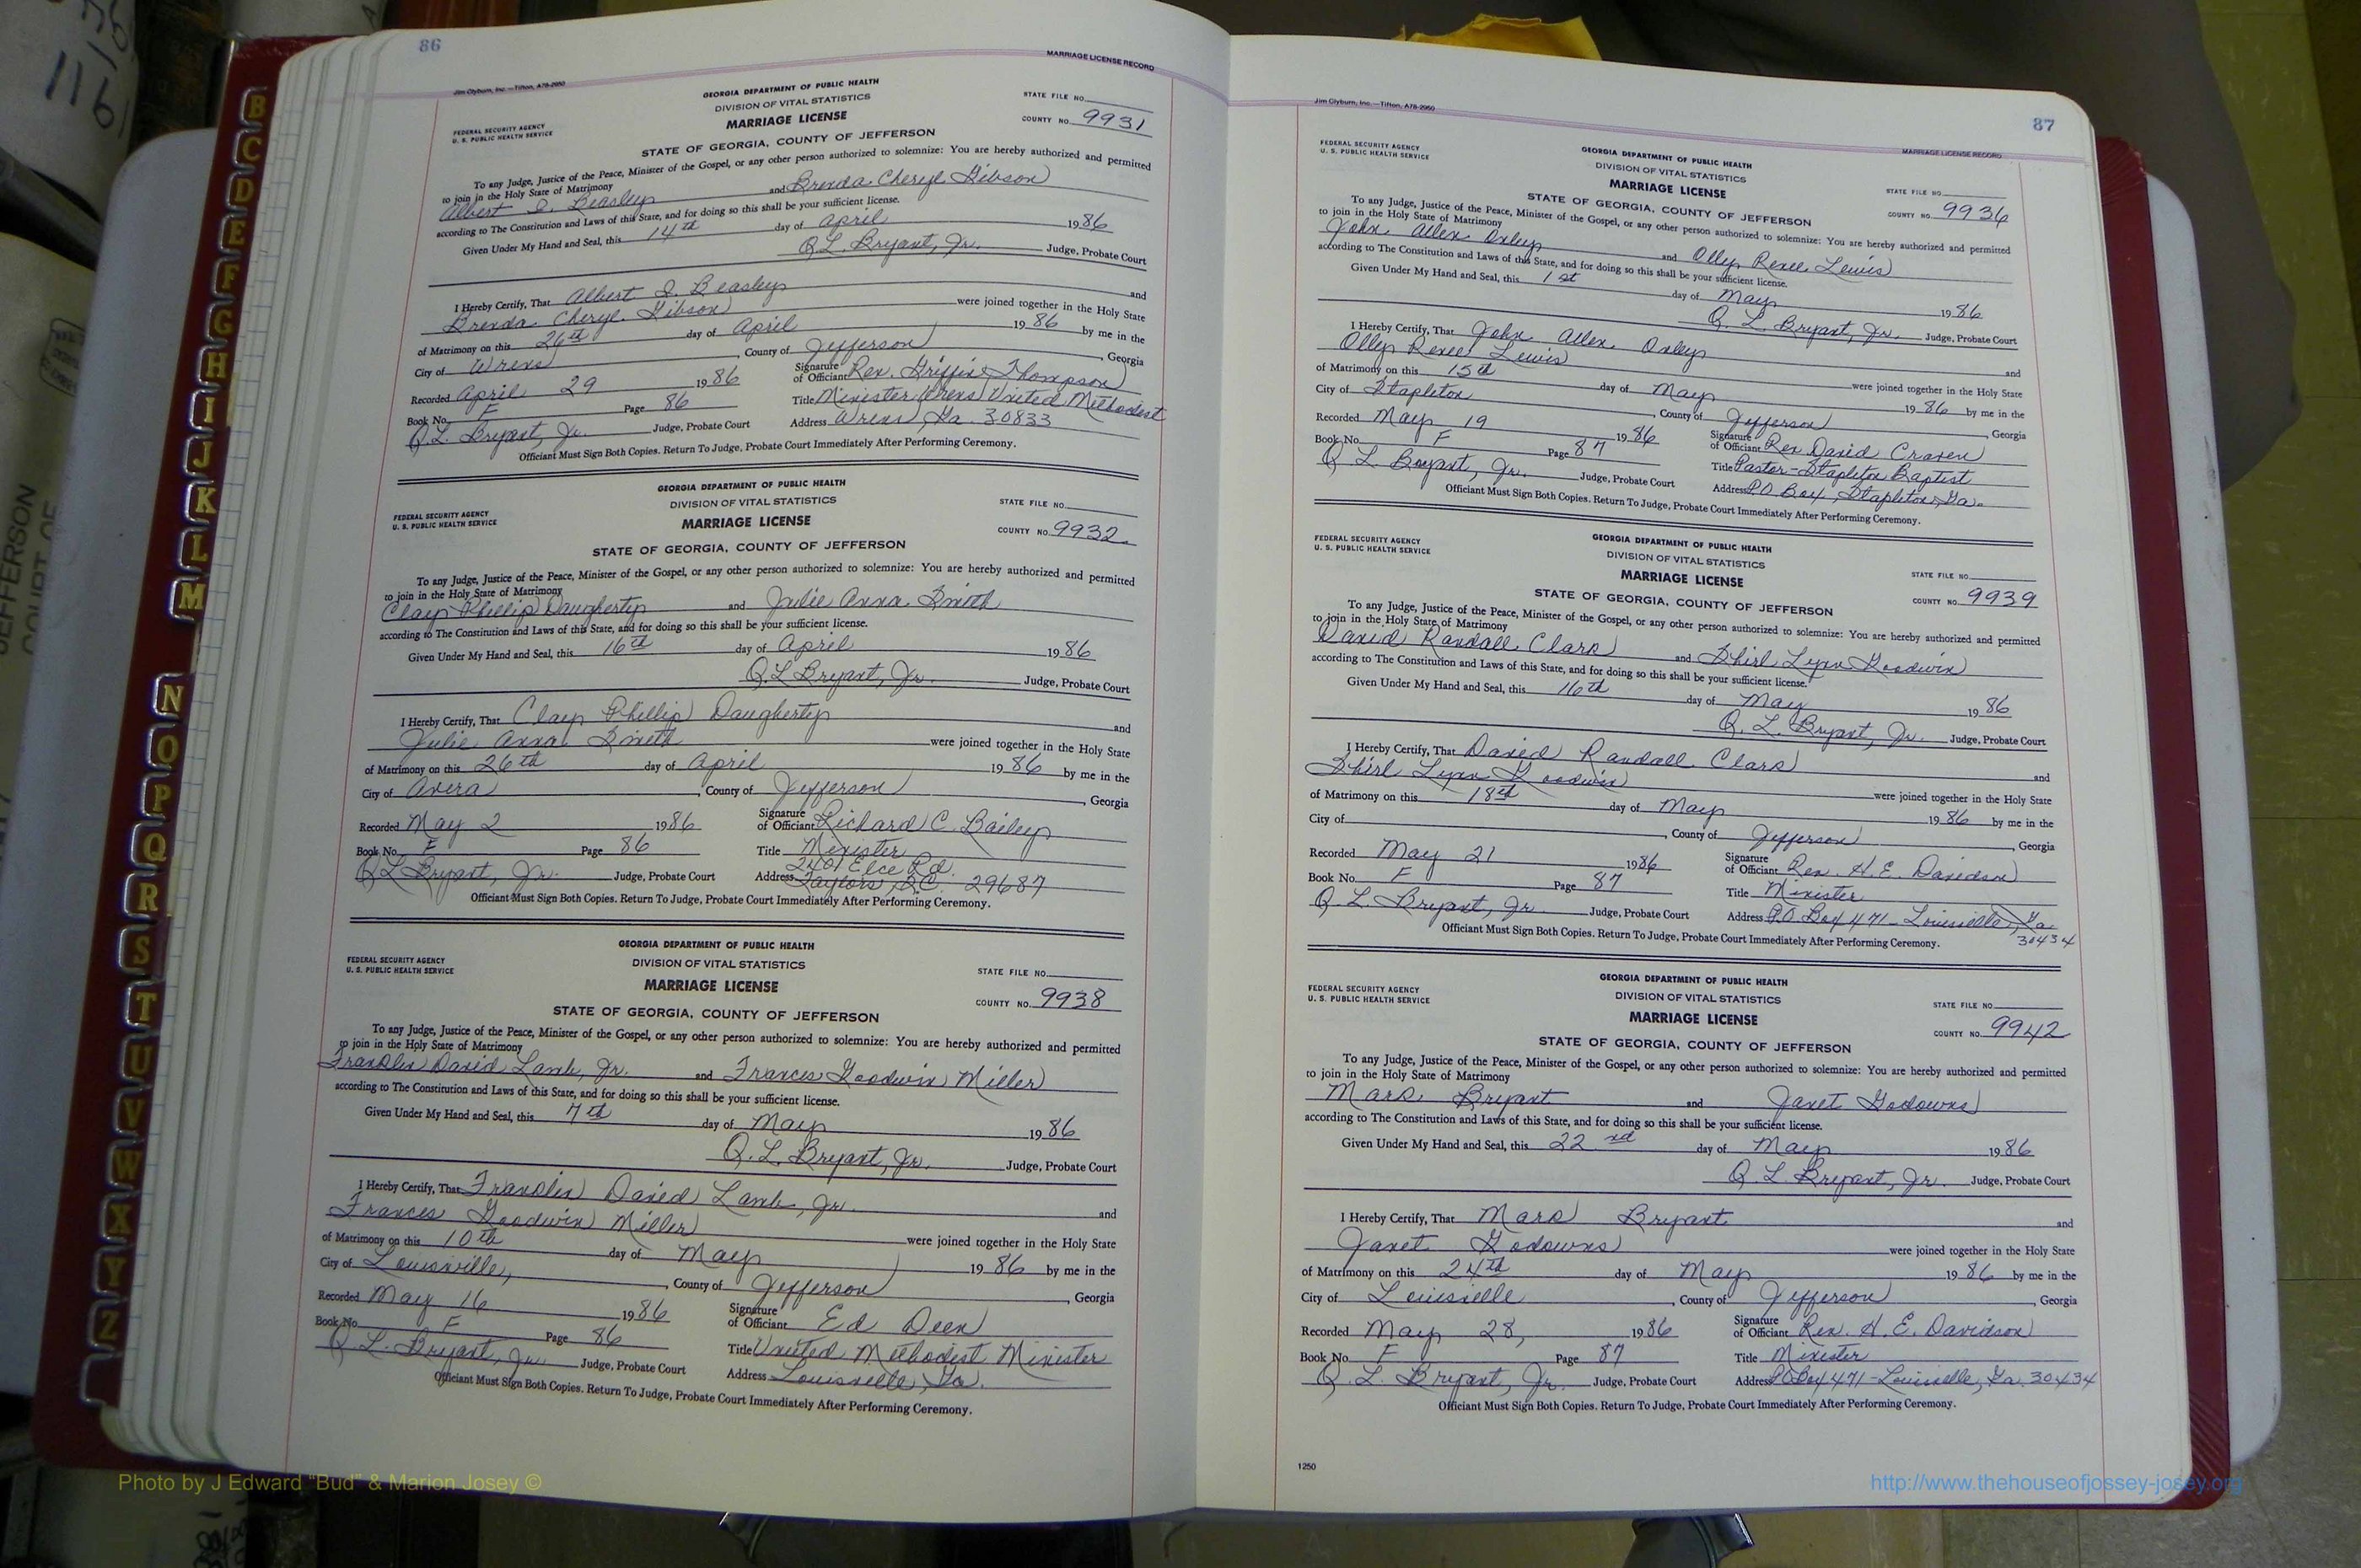 86
MARRIAGE LICENSE RECORD
Jim Clyburn, Inc.—Tifton, A78-2960
GEORGIA DEPARTMENT OF PUBLIC HEALTH
DIVISION OF VITAL STATISTICS
MARRIAGE LICENSE
STATE OF GEORGIA, COUNTY OF JEFFERSON
FEDERAL SECURITY AGENCY
U. S. PUBLIC HEALTH SERVICE
STATE FILE NO.
COUNTY NO. 9931
To any Judge, Justice of the Peace, Minister of the Gospel, or any other person authorized to solemnize: You are hereby authorized and permitted
to join in the Holy State of Matrimony
Albert I. Beasley and Brenda Cheryl Gibson
according to The Constitution and Laws of this State, and for doing so this shall be your sufficient license.
Given Under My Hand and Seal, this 14th day of April 1986
Q.L. Bryant, Jr. Judge, Probate Court
I Hereby Certify, That Albert I. Beasley and
Brenda Cheryl Gibson were joined together in the Holy State
of Matrimony on this 26th day of April 1986 by me in the
City of Wrens, County of Jefferson, Georgia
Recorded April 29 1986 Signature of Officiant Rev. Griffin Thompson
Book No. F Page 86 Title Minister Wrens United Methodist
Q.L. Bryant, Jr. Judge, Probate Court Address Wrens, Ga. 30833
Officiant Must Sign Both Copies. Return To Judge, Probate Court Immediately After Performing Ceremony.
GEORGIA DEPARTMENT OF PUBLIC HEALTH
DIVISION OF VITAL STATISTICS
MARRIAGE LICENSE
STATE OF GEORGIA, COUNTY OF JEFFERSON
FEDERAL SECURITY AGENCY
U. S. PUBLIC HEALTH SERVICE
STATE FILE NO.
COUNTY NO. 9932
To any Judge, Justice of the Peace, Minister of the Gospel, or any other person authorized to solemnize: You are hereby authorized and permitted
to join in the Holy State of Matrimony
Clay Phillip Daugherty and Julie Anna Smith
according to The Constitution and Laws of this State, and for doing so this shall be your sufficient license.
Given Under My Hand and Seal, this 16th day of April 1986
Q.L. Bryant, Jr. Judge, Probate Court
I Hereby Certify, That Clay Phillip Daugherty and
Julie Anna Smith were joined together in the Holy State
of Matrimony on this 26th day of April 1986 by me in the
City of Avera, County of Jefferson, Georgia
Recorded May 2 1986 Signature of Officiant Richard C. Bailey
Book No. F Page 86 Title Minister
2401 Elce Rd.
Q.L. Bryant, Jr. Judge, Probate Court Address Taylors, S.C. 29687
Officiant Must Sign Both Copies. Return To Judge, Probate Court Immediately After Performing Ceremony.
GEORGIA DEPARTMENT OF PUBLIC HEALTH
DIVISION OF VITAL STATISTICS
MARRIAGE LICENSE
STATE OF GEORGIA, COUNTY OF JEFFERSON
FEDERAL SECURITY AGENCY
U. S. PUBLIC HEALTH SERVICE
STATE FILE NO.
COUNTY NO. 9938
To any Judge, Justice of the Peace, Minister of the Gospel, or any other person authorized to solemnize: You are hereby authorized and permitted
to join in the Holy State of Matrimony
Franklin David Lamb, Jr. and Frances Goodwin Miller
according to The Constitution and Laws of this State, and for doing so this shall be your sufficient license.
Given Under My Hand and Seal, this 7th day of May 1986
Q.L. Bryant, Jr. Judge, Probate Court
I Hereby Certify, That Franklin David Lamb, Jr. and
Frances Goodwin Miller were joined together in the Holy State
of Matrimony on this 10th day of May 1986 by me in the
City of Louisville, County of Jefferson, Georgia
Recorded May 16 1986 Signature of Officiant Ed Deen
Book No. F Page 86 Title United Methodist Minister
Q.L. Bryant, Jr. Judge, Probate Court Address Louisville, Ga.
Officiant Must Sign Both Copies. Return To Judge, Probate Court Immediately After Performing Ceremony.
87
MARRIAGE LICENSE RECORD
Jim Clyburn, Inc.—Tifton, A78-2960
FEDERAL SECURITY AGENCY
U. S. PUBLIC HEALTH SERVICE
GEORGIA DEPARTMENT OF PUBLIC HEALTH
DIVISION OF VITAL STATISTICS
MARRIAGE LICENSE
STATE OF GEORGIA, COUNTY OF JEFFERSON
STATE FILE NO.
COUNTY NO. 9936
To any Judge, Justice of the Peace, Minister of the Gospel, or any other person authorized to solemnize: You are hereby authorized and permitted
to join in the Holy State of Matrimony
John Allen Oxley and Olly Renee Lewis
according to The Constitution and Laws of this State, and for doing so this shall be your sufficient license.
Given Under My Hand and Seal, this 1st day of May 1986
Q.L. Bryant, Jr. Judge, Probate Court
I Hereby Certify, That John Allen Oxley and
Olly Renee Lewis were joined together in the Holy State
of Matrimony on this 15th day of May 1986 by me in the
City of Stapleton, County of Jefferson, Georgia
Recorded May 19 1986 Signature of Officiant Rev David Craven
Book No. F Page 87 Title Pastor-Stapleton Baptist
Q.L. Bryant, Jr. Judge, Probate Court Address P.O. Box, Stapleton, Ga.
Officiant Must Sign Both Copies. Return To Judge, Probate Court Immediately After Performing Ceremony.
FEDERAL SECURITY AGENCY
U. S. PUBLIC HEALTH SERVICE
GEORGIA DEPARTMENT OF PUBLIC HEALTH
DIVISION OF VITAL STATISTICS
MARRIAGE LICENSE
STATE OF GEORGIA, COUNTY OF JEFFERSON
STATE FILE NO.
COUNTY NO. 9939
To any Judge, Justice of the Peace, Minister of the Gospel, or any other person authorized to solemnize: You are hereby authorized and permitted
to join in the Holy State of Matrimony
David Randall Clark and Shirl Lynn Goodwin
according to The Constitution and Laws of this State, and for doing so this shall be your sufficient license.
Given Under My Hand and Seal, this 16th day of May 1986
Q.L. Bryant, Jr. Judge, Probate Court
I Hereby Certify, That David Randall Clark and
Shirl Lynn Goodwin were joined together in the Holy State
of Matrimony on this 18th day of May 1986 by me in the
City of , County of Jefferson, Georgia
Recorded May 21 1986 Signature of Officiant Rev. H.E. Davidson
Book No. F Page 87 Title Minister
Q.L. Bryant, Jr. Judge, Probate Court Address P.O. Box 471-Louisville, Ga.
30434
Officiant Must Sign Both Copies. Return To Judge, Probate Court Immediately After Performing Ceremony.
FEDERAL SECURITY AGENCY
U. S. PUBLIC HEALTH SERVICE
GEORGIA DEPARTMENT OF PUBLIC HEALTH
DIVISION OF VITAL STATISTICS
MARRIAGE LICENSE
STATE OF GEORGIA, COUNTY OF JEFFERSON
STATE FILE NO.
COUNTY NO. 9942
To any Judge, Justice of the Peace, Minister of the Gospel, or any other person authorized to solemnize: You are hereby authorized and permitted
to join in the Holy State of Matrimony
Mark Bryant and Janet Godowns
according to The Constitution and Laws of this State, and for doing so this shall be your sufficient license.
Given Under My Hand and Seal, this 22nd day of May 1986
Q.L. Bryant, Jr. Judge, Probate Court
I Hereby Certify, That Mark Bryant and
Janet Godowns were joined together in the Holy State
of Matrimony on this 24th day of May 1986 by me in the
City of Louisville, County of Jefferson, Georgia
Recorded May 28, 1986 Signature of Officiant Rev. H.E. Davidson
Book No. F Page 87 Title Minister
Q.L. Bryant, Jr. Judge, Probate Court Address P.O. Box 471-Louisville, Ga. 30434
Officiant Must Sign Both Copies. Return To Judge, Probate Court Immediately After Performing Ceremony.
1250
B
C
D
E
F
G
H
I
J
K
L
M
N
O
P
Q
R
S
T
U
V
W
X
Y
Z
Photo by J Edward "Bud" & Marion Josey ©
http://www.thehouseofjossey-josey.org